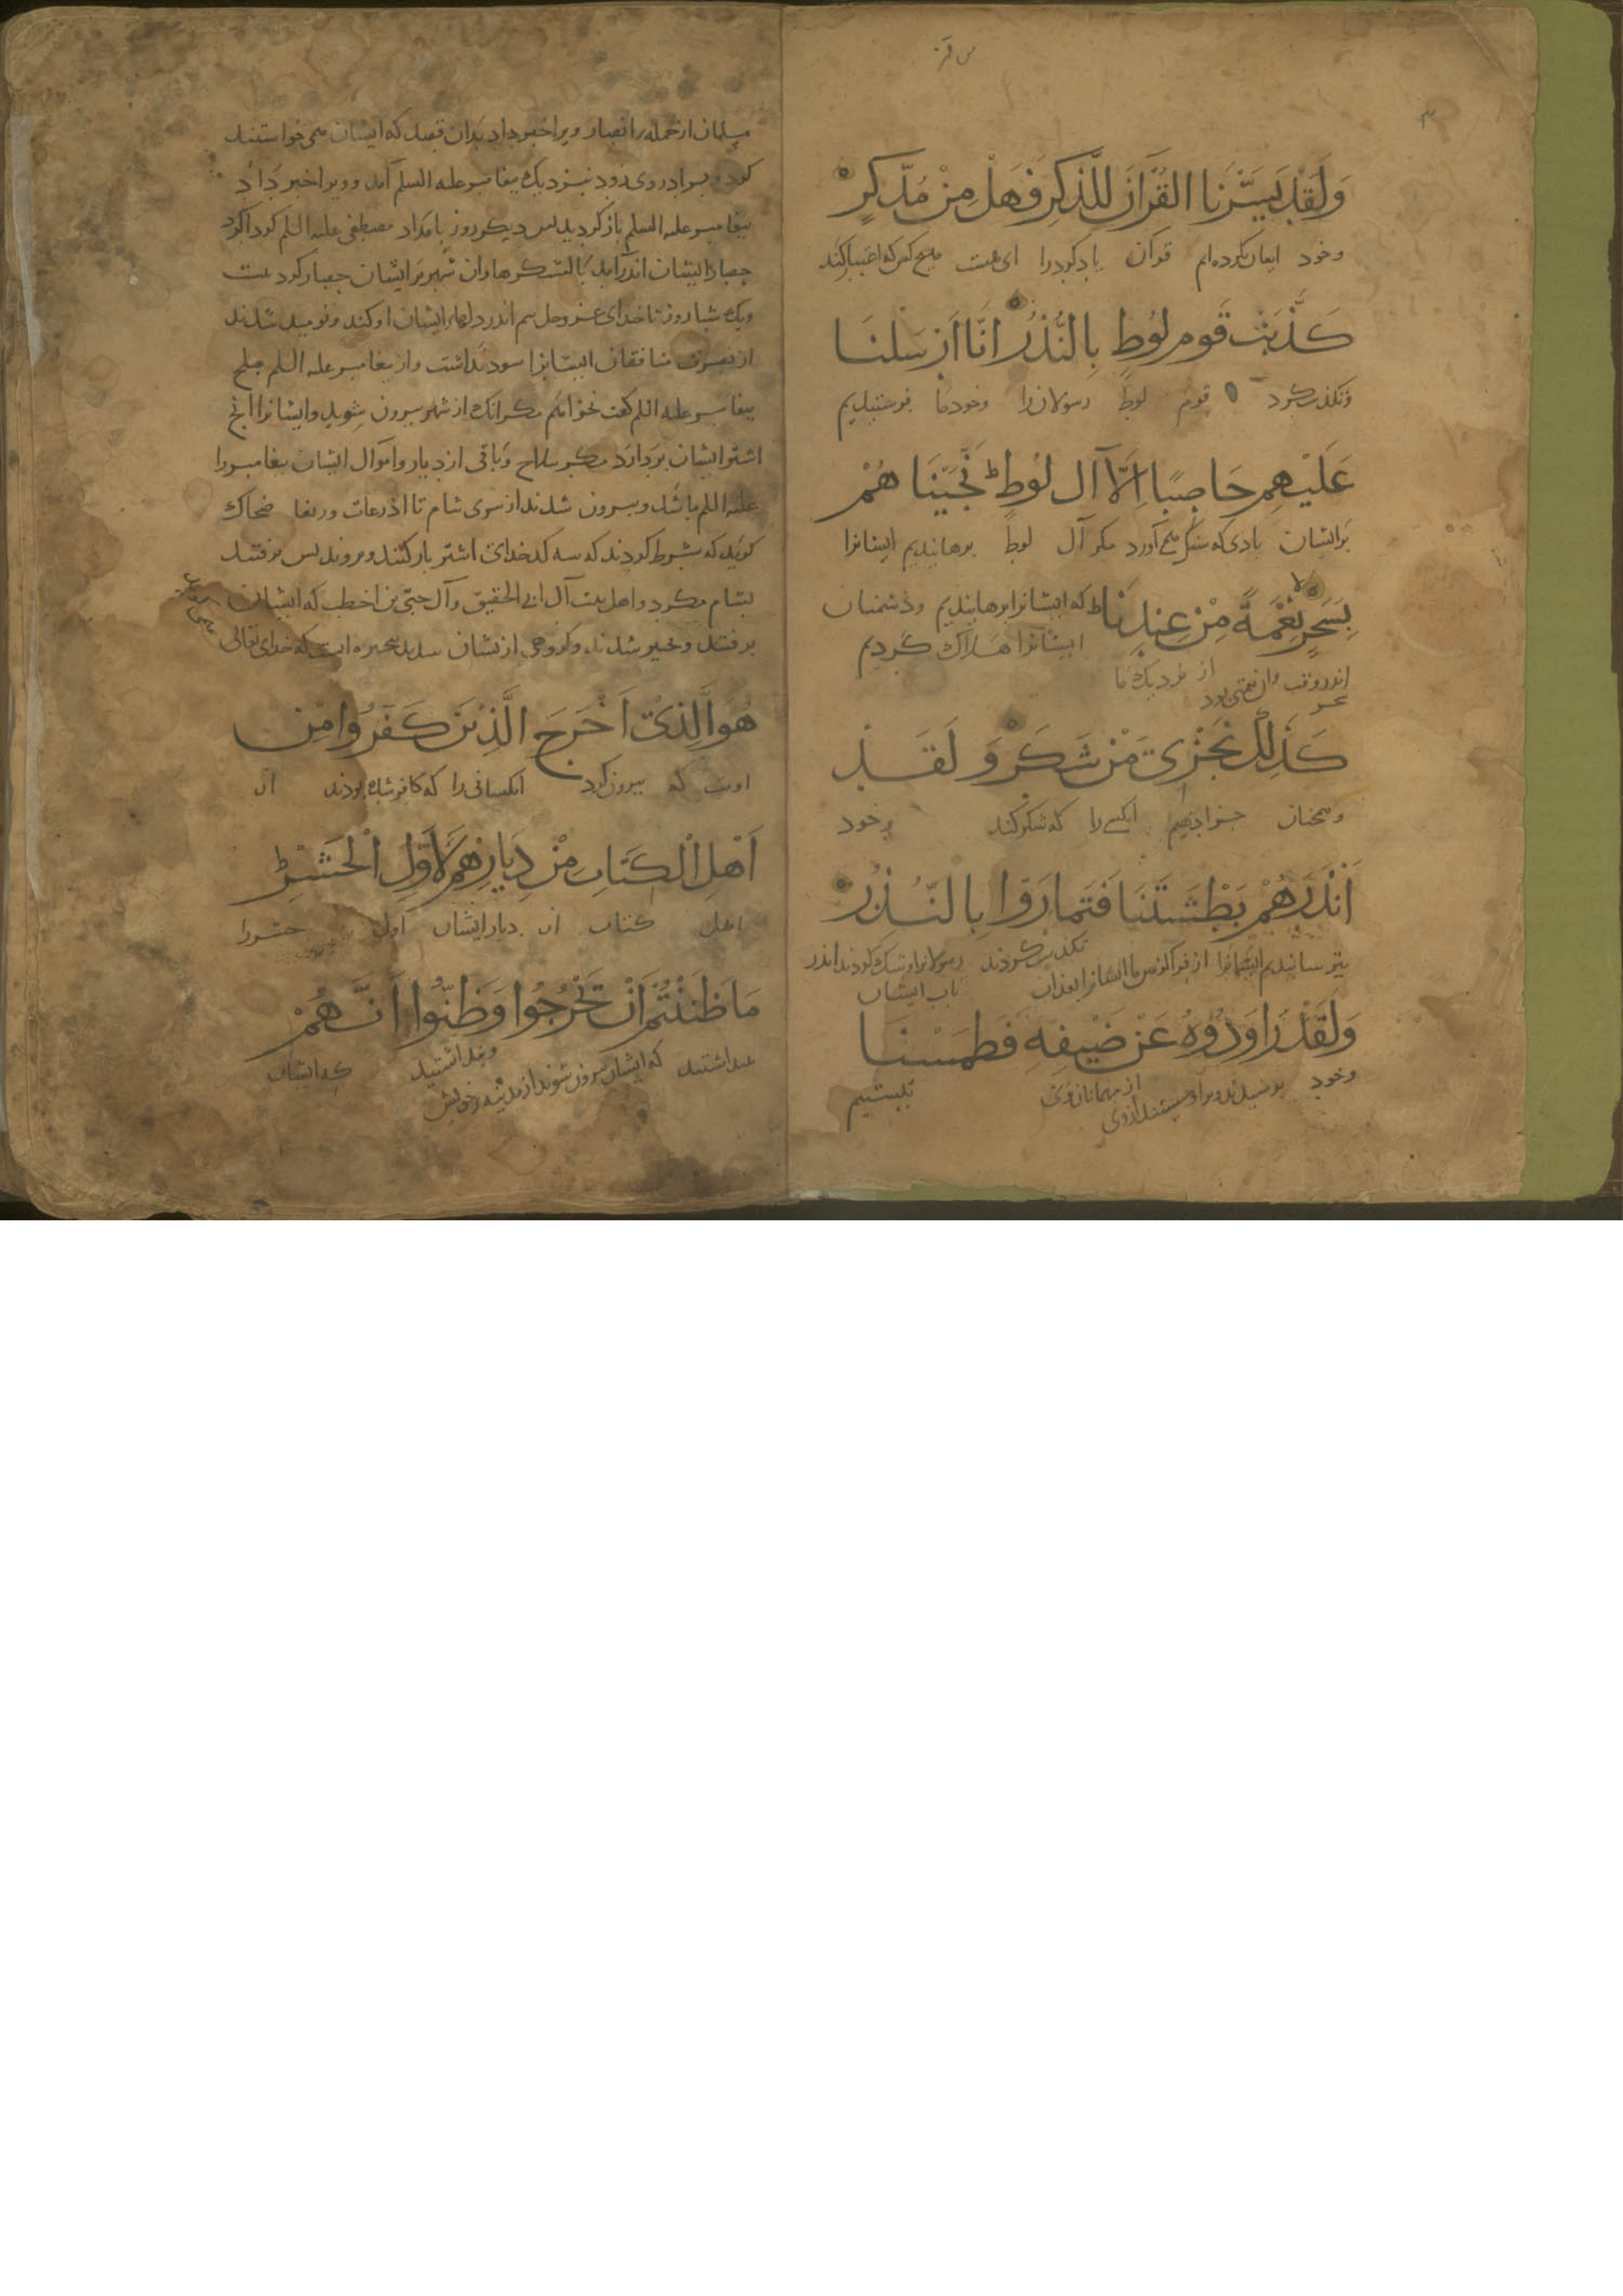 وَلَقَدْ يَسَّرْنَا الْقُرْآنَ لِلذِّكْرِ فَهَلْ مِنْ مُدَّكِرٍ
وخود قرآن یادکرد را ای هست هیچ کس که
كَذَّبَتْ قَوْمُ لُوطٍ بِالنُّذُرِ اِنَّا اَرْسَلْنَا
قوم لوط رسولان را وخود ما فرستیدیم
عَلَيْهِمْ حَاصِبًا اِلَّا آلَ لُوطٍ نَجَّيْنَاهُمْ
بر ایشان بادی که آورد مکر آل لوط برهانیدیم ایشانرا
بِسَحَرٍ نِعْمَةً مِنْ عِنْدِنَا که ایشانرا برهانیدیم ودشمنان
ایشانرا هلاک کردیم
از نزدیک ما
كَذَلِكَ نَجْزِي مَنْ شَكَرَ وَلَقَدْ
جزا دهیم که شکر کند وخود
اَنْذَرَهُمْ بَطْشَتَنَا فَتَمَارَوْا بِالنُّذُرِ
بترسانیدیم ایشانرا از
باب ایشان
وَلَقَدْ رَاوَدُوهُ عَنْ ضَيْفِهِ فَطَمَسْنَا
وخود از مهمانان وی
مسلمان از جمله انصار ویرا خبر داد بدان قصد که ایشان می خواستند
کرد بیغامبر علیه السلم آمد وویرا خبر داد
بیغامبر علیه السلم باز کردید بس دیکر روز بامداد مصطفی علیه السلم
حصار ایشان اندر آمد با لشکرها وان شهر بر ایشان حصار کرد بیست
ویک شبا روز تا خدای عز وجل بیم اندر دلهاء ایشان اوکند ونومید شدند
از نصرت منافقان ایشانرا سود نداشت واز بیغامبر علیه السلم صلح
بیغامبر علیه السلم کفت نخواهم مکر انک از شهر بیرون شوید وایشانرا انچ
اشتر ایشان بردارد مکر سلاح وباقی از دیار واموال ایشان بیغامبر را
علیه السلم باشد وبیرون شدند از سوی شام تا اذرعات وریحا ضحاک
کوید که شرط کردند که سه کدخدای اشتر بار کنند وبروند بس برفتند
بشام مکر دو اهل بیت آل ابی الحقیق وآل حیی بن اخطب که ایشان
برفتند وخیبر شدند وکروهی از یشان که خدای تعالی
هُوَ الَّذِي اَخْرَجَ الَّذِينَ كَفَرُوا مِنْ
اوست که بیرون کرد که کافر شده بودند از
اَهْلِ الْكِتَابِ مِنْ دِيَارِهِمْ لِاَوَّلِ الْحَشْرِ
اهل کتاب از دیار ایشان اول حشر را
مَا ظَنَنْتُمْ اَنْ يَخْرُجُوا وَظَنُّوا اَنَّهُمْ
که ایشان بیرون شوند از مدینه وبنداشتند که ایشان